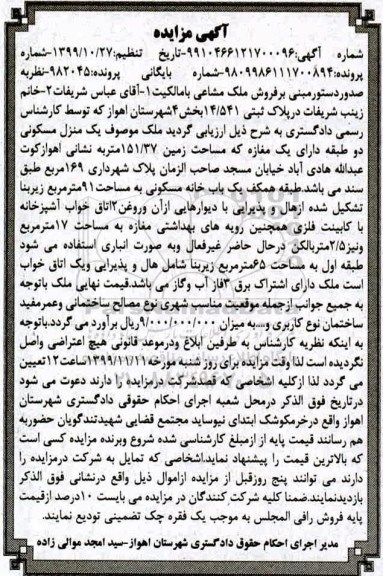 آگهی مزایده
شماره آگهی:۹۹۱۰۴۶۶۱۲۱۷۰۰۰۹۶-تاریخ تنظیم:۱۳۹۹/۱۰/۲۷-شماره
پرونده:۹۸۰۹۹۸۶۱۱۱۷۰۰۸۹۴-شماره بایگانی پرونده:۹۸۲۰۴۵-نظربه
صدوردستورمبنی برفروش ملک مشاعی بامالکیت۱-آقای عباس شریفات۲-خانم
زینب شریفات درپلاک ثبتی ۱۴/۵۴۱بخش۴شهرستان اهواز که توسط کارشناس
رسمی دادگستری به شرح ذیل ارزیابی گردید ملک موصوف یک منزل مسکونی
دو طبقه دارای یک مغازه که مساحت زمین ۱۵۱/۳۷متربه نشانی اهوازکوت
عبدالله هادی آباد خیابان مسجد صاحب الزمان پلاک شهرداری ۱۶۹مربع طبق
سند می باشد.طبقه همکف یک باب خانه مسکونی به مساحت۹۱مترمربع زیربنا
تشکیل شده ازهال و پذیرایی با دیوارهایی ازآن وروغن۲اتاق خواب آشپزخانه
با کابینت فلزی همچنین رویه های بهداشتی مغازه به مساحت ۱۷مترمربع
ونیز۲/۵متربالکن درحال حاضر غیرفعال وبه صورت انباری استفاده می شود
طبقه اول به مساحت ۶۵مترمربع زیربنا شامل هال و پذیرایی ویک اتاق خواب
است ملک دارای اشتراک برق ۳فاز آب وگاز می باشد.قیمت نهایی ملک باتوجه
به جمیع جوانب ازجمله موقعیت مناسب شهری نوع مصالح ساختمانی وعمرمفید
ساختمان نوع کاربری و...به میزان ۹/۰۰۰/۰۰۰/۰۰۰ریال برآورد می گردد.باتوجه
به اینکه نظریه کارشناس به طرفین ابلاغ ودرموعد قانونی هیچ اعتراضی واصل
نگردیده است لذا وقت مزایده برای روز شنبه مورخه۱۳۹۹/۱۱/۱۱ساعت۱۲تعیین
می گردد لذا ازکلیه اشخاصی که قصدشرکت درمزایده را دارند دعوت می شود
درتاریخ فوق الذکر درمحل شعبه اجرای احکام حقوقی دادگستری شهرستان
اهواز واقع درخرمکوشک ابتدای نیوساید مجتمع قضایی شهیدتندگویان حضوربه
هم رسانند قیمت پایه از ازمبلغ کارشناسی شده شروع وبرنده مزایده کسی است
که بالاترین قیمت را پیشنهاد نماید.اشخاصی که تمایل به شرکت درمزایده را
دارند می توانند پنج روزقبل از مزایده ازاموال ذیل واقع درنشانی فوق الذکر
بازدیدنمایند.ضمنا کلیه شرکت کنندگان در مزایده می بایست ۱۰درصد ازقیمت
پایه فروش رافی المجلس به موجب یک فقره چک تضمینی تودیع نمایند.
مدیر اجرای احکام حقوق دادگستری شهرستان اهواز-سید امجد موالی زاده